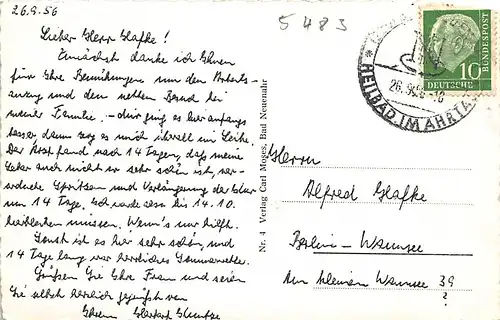 26.9.56
5483
Lieber Herr Glafke!
Zunächst danke ich Ihnen
für Ihre Bemühungen um den Arbeits-
anzug und den netten Besuch bei
meiner Familie. – ging es hier anfangs
besser, dann zog es mich überall im Leibe.
Der Arzt fand nach 14 Tagen, daß meine
Leber auch nicht so sehr schön ist, ver-
ordnete Spritzen und Verlängerung der Kur
um 14 Tage. Ich werde also bis 14.10.
hierbleiben müssen. Wenn's nur hilft.
Sonst ist es hier sehr schön, und
14 Tage lang war herrliches Sommerwetter.
Grüßen Sie Ihre Frau und seien
Sie selbst herzlich gegrüßt von
Ihrem Herbert
Nr. 4 Verlag Carl Moses, Bad Neuenahr
HEILBAD IM AHRTAL
26.9.56
10
DEUTSCHE
BUNDESPOST
Herrn
Alfred Glafke
Berlin-Wannsee
Am kleinen Wannsee 39
?